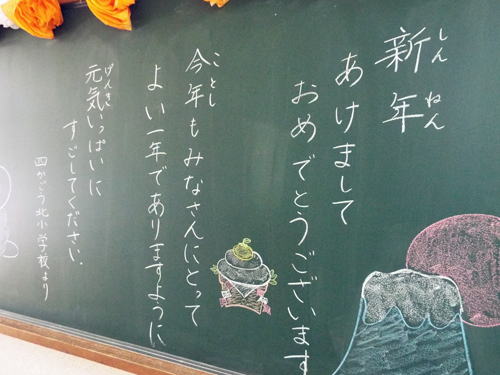 しんねん
新年
あけまして
おめでとうございます
ことし
今年もみなさんにとって
よい一年でありますように
げんき
元気いっぱいに
すごしてください。
四かごう北小学校より